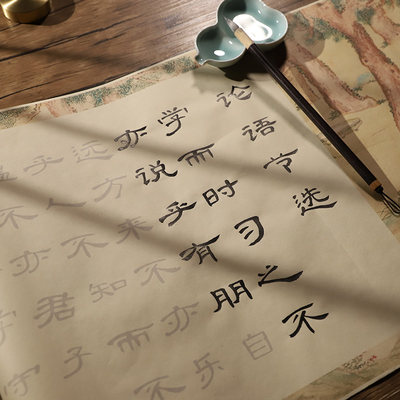 论语节选
学而时习之不
亦说乎有朋自
远方来不亦乐
乎人不知而不
不亦君子